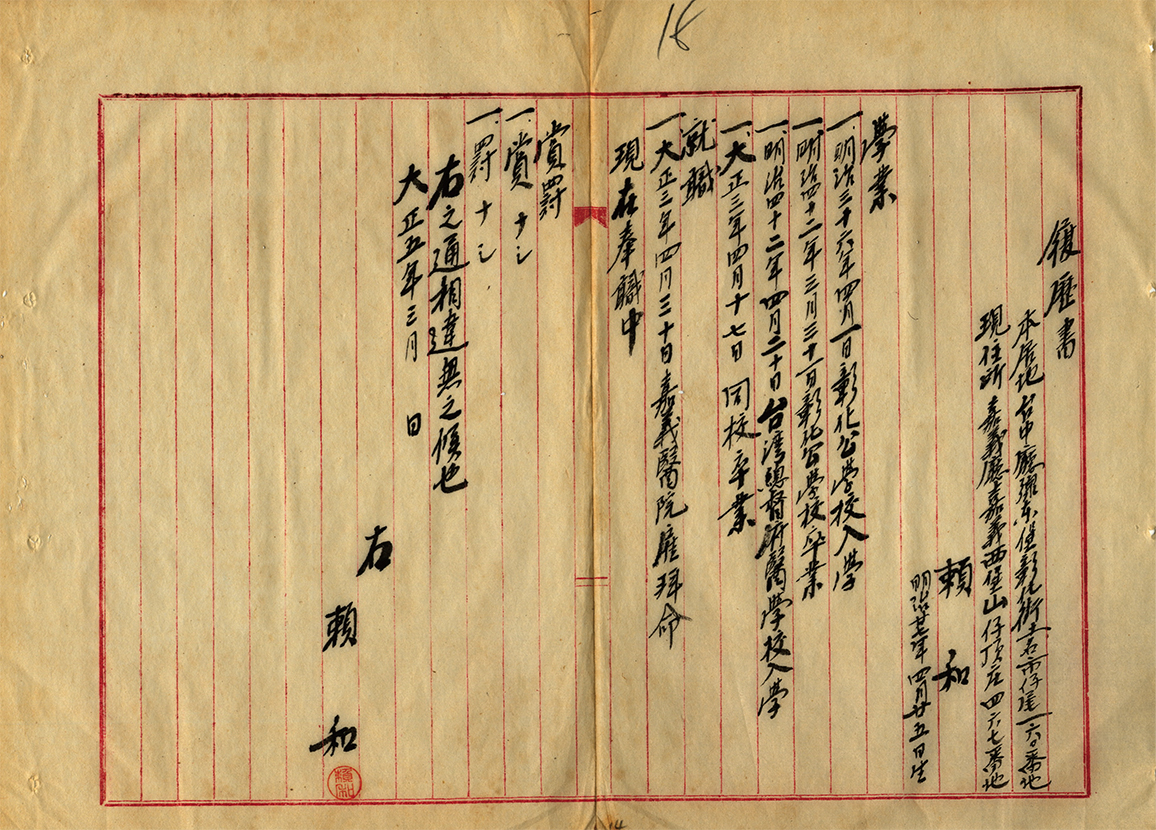 18
履歷書
本居地 台中廳線東堡彰化街土名市仔尾一六〇番地
現住所 嘉義廳嘉義西堡山仔頂庄四六七番地
賴和
明治廿七年四月廿五日生
學業
一、明治三十六年四月一日彰化公學校入學
一、明治四十二年三月三十一日彰化公學校卒業
一、明治四十二年四月二十日台湾總督府醫學校入學
一、大正三年四月十七日 同校卒業
就職
一、大正三年四月三十日嘉義醫院雇拜命
現在奉職中
賞罰
一、賞 ナシ
一、罰 ナシ
右之通相違無之候也
大正五年三月 日
右
賴和
賴和
14